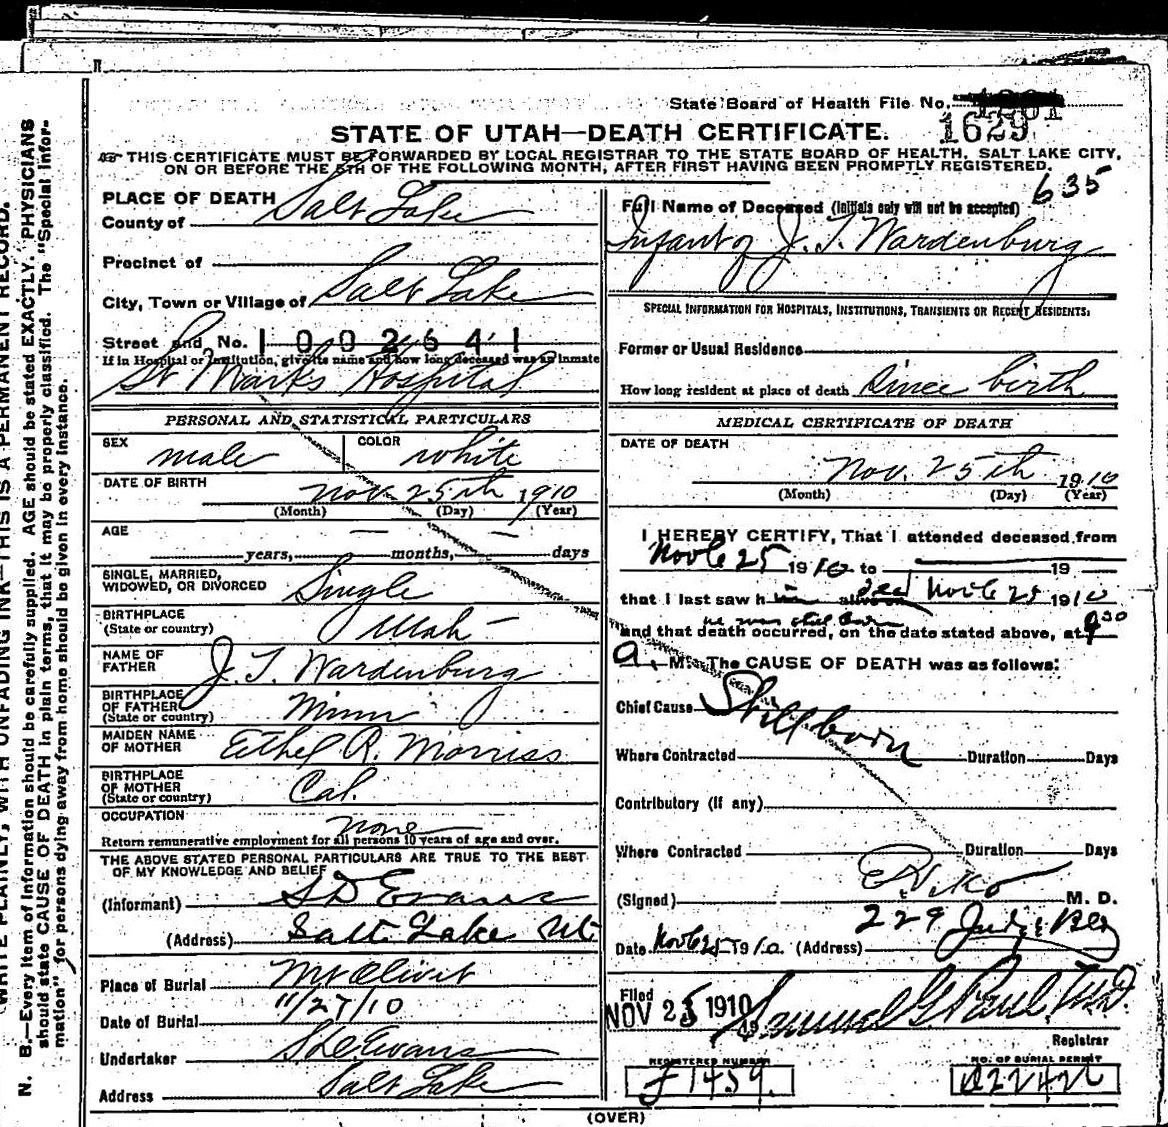 State Board of Health File No.
1629
STATE OF UTAH—DEATH CERTIFICATE.
THIS CERTIFICATE MUST BE FORWARDED BY LOCAL REGISTRAR TO THE STATE BOARD OF HEALTH, SALT LAKE CITY,
ON OR BEFORE THE 5TH OF THE FOLLOWING MONTH, AFTER FIRST HAVING BEEN PROMPTLY REGISTERED.
635
PLACE OF DEATH
County of Salt Lake
Precinct of
City, Town or Village of Salt Lake
Street and No. 1002641
If in Hospital or Institution, give its name and how long deceased was an inmate
St Mark's Hospital
PERSONAL AND STATISTICAL PARTICULARS
SEX male COLOR white
DATE OF BIRTH Nov. 25th 1910
(Month) (Day) (Year)
AGE — —
years, months, days
SINGLE, MARRIED,
WIDOWED, OR DIVORCED Single
BIRTHPLACE
(State or country) Utah
NAME OF
FATHER J. T. Wardenburg
BIRTHPLACE
OF FATHER
(State or country) Minn
MAIDEN NAME
OF MOTHER Ethel R. Morriss
BIRTHPLACE
OF MOTHER
(State or country) Cal.
OCCUPATION none
Return remunerative employment for all persons 10 years of age and over.
THE ABOVE STATED PERSONAL PARTICULARS ARE TRUE TO THE BEST
OF MY KNOWLEDGE AND BELIEF
(Informant) S D Evans
(Address) Salt Lake Ut
Place of Burial Mt Olivet
Date of Burial 11/27/10
Undertaker S D Evans
Address Salt Lake
Full Name of Deceased (Initials only will not be accepted)
Infant of J. T. Wardenburg
SPECIAL INFORMATION FOR HOSPITALS, INSTITUTIONS, TRANSIENTS OR RECENT RESIDENTS:
Former or Usual Residence
How long resident at place of death Since birth
MEDICAL CERTIFICATE OF DEATH
DATE OF DEATH
Nov. 25th 1910
(Month) (Day) (Year)
I HEREBY CERTIFY, That I attended deceased from
25 1910 to 19
that I last saw him alive on dead 25 1910
he was still born
and that death occurred, on the date stated above, at 9 30
A. M. The CAUSE OF DEATH was as follows:
Chief Cause Stillborn
Where Contracted Duration Days
Contributory (if any)
Where Contracted Duration Days
(Signed) M. D.
Date 25 1910 (Address) 229
Filed
NOV 25 1910 19 Samuel G. Paul, M.D.
Registrar
REGISTERED NUMBER NO. OF BURIAL PERMIT
1459
(OVER)
N. B.—Every item of information should be carefully supplied. AGE should be stated EXACTLY. PHYSICIANS
should state CAUSE OF DEATH in plain terms, that it may be properly classified. The "Special Infor-
mation" for persons dying away from home should be given in every instance.
WRITE PLAINLY, WITH UNFADING INK—THIS IS A PERMANENT RECORD.